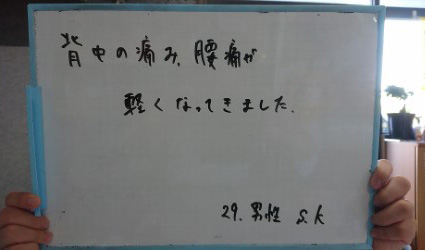 背中の痛み、腰痛が
軽くなってきました.
29. 男性 S.K